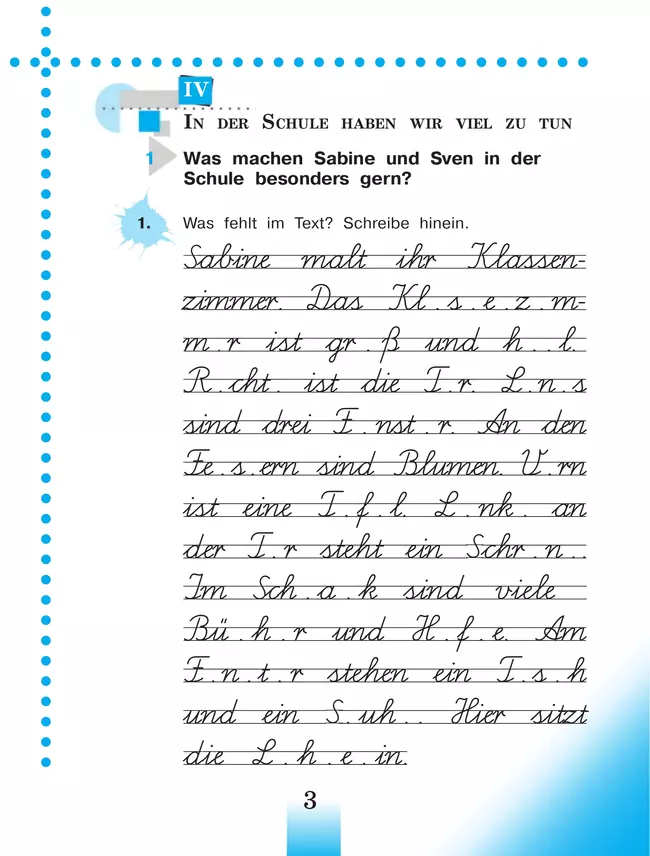 IV
In der Schule haben wir viel zu tun
1 Was machen Sabine und Sven in der
Schule besonders gern?
1. Was fehlt im Text? Schreibe hinein.
Sabine malt ihr Klassen-
zimmer. Das Kl.s.e.z.m-
m.r ist gr.ß und h..l.
R.cht. ist die T.r. L.n.s
sind drei F.nst.r. An den
Fe.s.ern sind Blumen. V.rn
ist eine T.f.l. L.nk. an
der T.r steht ein Schr.n..
Im Sch.a.k sind viele
Bü.h.r und H.f.e. Am
F.n.t.r stehen ein T.s.h
und ein S.uh.. Hier sitzt
die L.h.e.in.
3